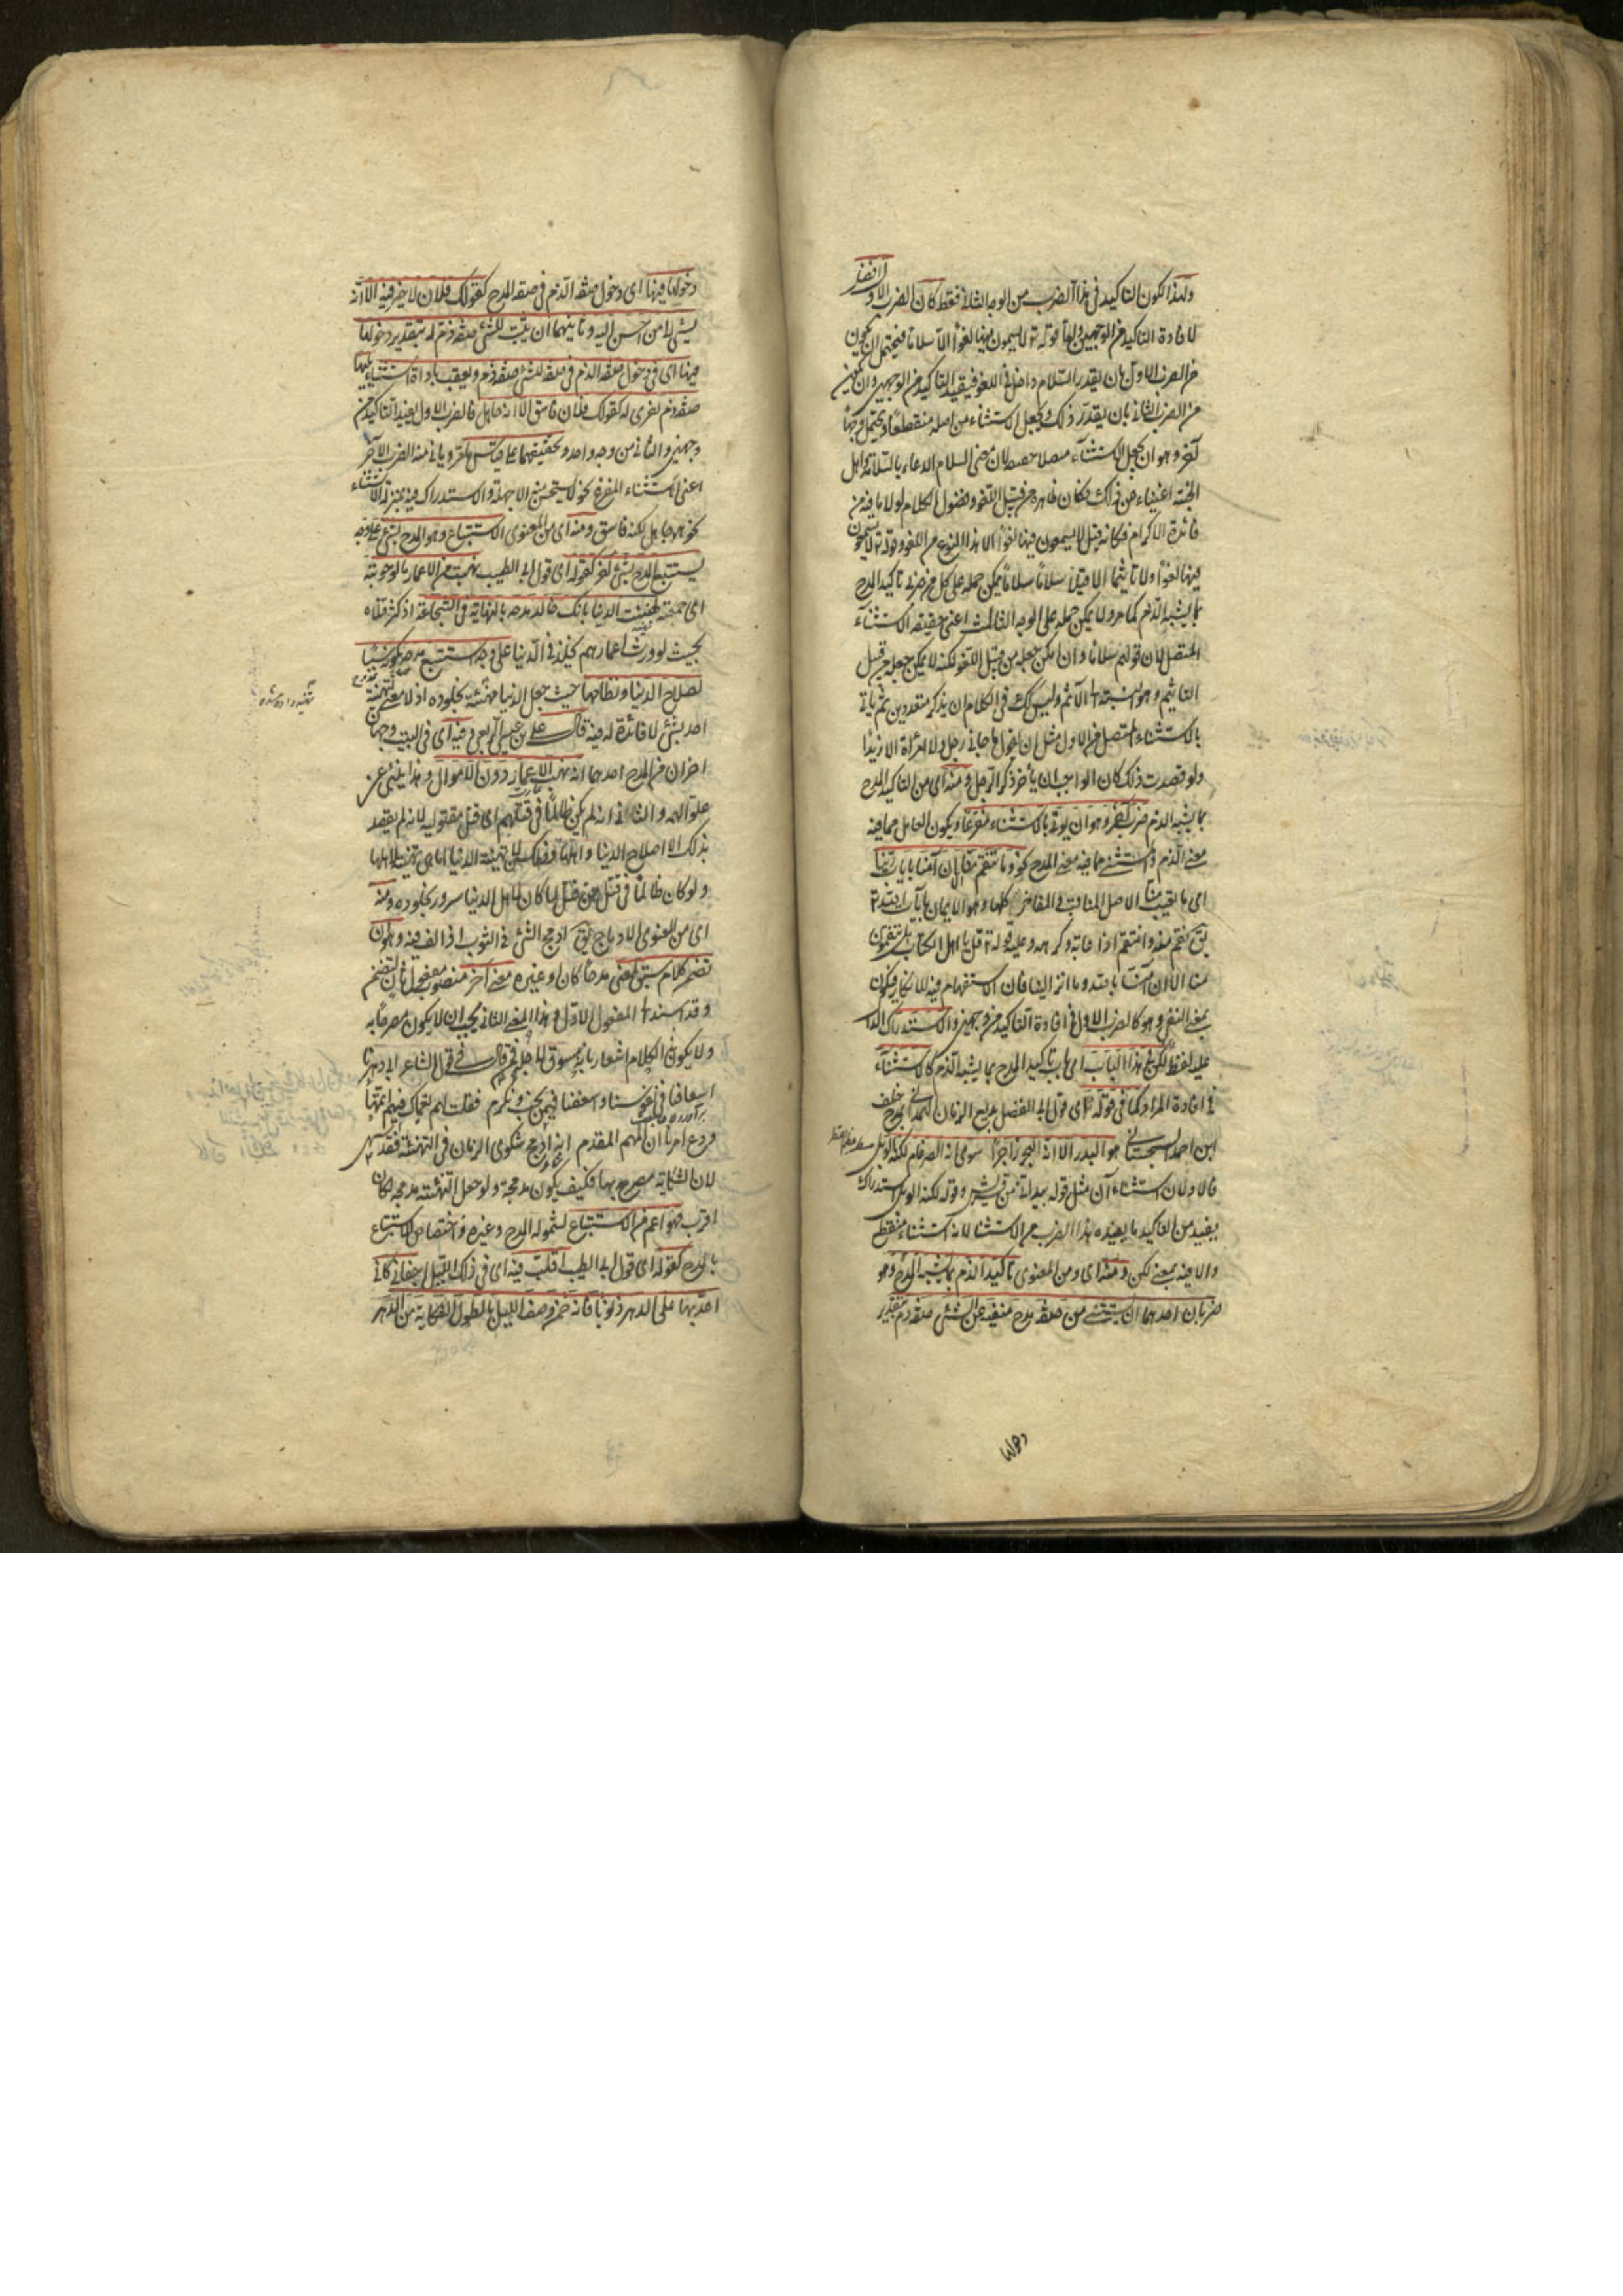 ولهذا لكون التاكيد في هذا الضرب من الوجه الثاني فقط كان الضرب الاول افضل
لافادة التاكيد من الوجهين واما قوله تع لا يسمعون فيها لغوا الا سلاما فيحتمل ان يكون
من الضرب الاول بان يقدر السلام داخلا في اللغو فيفيد التاكيد من الوجهين وان يكون
من الضرب الثاني بان لا يقدر ذلك ويجعل الاستثناء من اصله منقطعا ويحتمل وجها
آخر وهو ان يجعل الاستثناء متصلا حقيقة لان معنى السلام الدعاء بالسلامة واهل
الجنة اغنياء عن ذلك فكان ظاهره من قبيل اللغو وفضول الكلام لولا ما فيه من
فائدة الاكرام فكانه قيل لا يسمعون فيها لغوا الا هذا النوع من اللغو وقوله تع لا يسمعون
فيها لغوا ولا تاثيما الا قيلا سلاما سلاما يمكن حمله على كل من ضربي تاكيد المدح
بما يشبه الذم كما مر ولا يمكن حمله على الوجه الثالث اعني حقيقة الاستثناء
المتصل لان قولهم سلاما وان امكن جعله من قبيل اللغو لكنه لا يمكن جعله من قبيل
التاثيم وهو النسبة الى الاثم وليس لك في الكلام ان يذكر متعددين ثم ياتي
بالاستثناء المتصل من الاول مثل ان تقول ما جاءني رجل ولا امرأة الا زيدا
ولو قصدت ذلك كان الواجب ان يأخر ذكر الرجل ومنه اي من تاكيد المدح
بما يشبه الذم ضرب آخر وهو ان يوتى بالاستثناء مفرغا ويكون العامل مما فيه
معنى الذم والمستثنى مما فيه معنى المدح نحو وما تنقم منا الا ان آمنا بايات ربنا
اي ما تعيب منا الا اصل المناقب والمفاخر كلها وهو الايمان بايات الله تع
يق نقم منه وانتقم اذا عابه وكرهه وعليه قوله تع قل يا اهل الكتاب هل تنقمون
منا الا ان آمنا بالله وما انزل الينا فان الاستفهام فيه للانكار فيكون
بمعنى النفي وهو كالضرب الاول في افادة التاكيد من وجهين والاستدراك الدال
عليه لفظ لكن في هذا الباب اي باب تاكيد المدح بما يشبه الذم كالاستثناء
في افادة المراد كما في قوله اي قول ابي الفضل بديع الزمان الهمداني يمدح خلف
ابن احمد السجستاني هو البدر الا انه البحر زاخرا سوى انه الضرغام لكنه الوبل
فالاولان استثناءان مثل قوله بيد اني من قريش وقوله لكنه الوبل استدراك
يفيد من التاكيد ما يفيده هذا الضرب من الاستثناء لانه استثناء منقطع
والا فيه بمعنى لكن ومنه اي ومن المعنوي تاكيد الذم بما يشبه المدح وهو
ضربان احدهما ان يستثنى من صفة مدح منفية عن الشئ صفة ذم بتقدير
دخولها
دخولها فيها اي دخول صفة الذم في صفة المدح كقولك فلان لا خير فيه الا انه
يسئ الى من احسن اليه وثانيهما ان يثبت للشئ صفة ذم له بتقدير دخولها
فيها اي في دخول صفة الذم في صفة للشئ صفة ذم ويعقب باداة استثناء يليها
صفة ذم اخرى له كقولك فلان فاسق الا انه جاهل فالضرب الاول يفيد التاكيد من
وجهين والثاني من وجه واحد وتحقيقهما على قياس ما مر ويأتي منه الضرب الآخر
اعني الاستثناء المفرغ نحو لا يستحسن منه الا جهله والاستدراك فيه بمنزلة الاستثناء
نحو هو جاهل لكنه فاسق ومنه اي من المعنوي الاستتباع وهو المدح بشئ على وجه
يستتبع المدح بشئ آخر كقوله اي قول ابي الطيب نهبت من الاعمار ما لو حويته
اي جمعته لهنئت الدنيا بانك خالد مدحه بالنهاية في الشجاعة اذ كثر قتلاه
بحيث لو ورث اعمارهم لخلد في الدنيا على وجه استتبع مدحه بكونه سببا
لصلاح الدنيا ونظامها حيث جعل الدنيا مهنئة بخلوده اذ لا معنى لتهنئة
احد بشئ لا فائدة له فيه قال علي بن عيسى الربعي وفيه اي في البيت وجهان
اخران من المدح احدهما انه نهب الاعمار دون الاموال وهذا ينبئ عن
علو الهمة والثاني انه لم يكن ظالما في قتلهم اي قتل مقتوليه لانه لم يقصد
بذلك الا اصلاح الدنيا واهلها وذلك لان تهنئة الدنيا انما هي تهنئة لاهلها
ولو كان ظالما في قتل من قتل لما كان لاهل الدنيا سرور بخلوده ومنه
اي من المعنوي الادماج يق ادمج الشئ في الثوب اذا لفه فيه وهو ان
تضمن كلام سيق لمعنى مدحا كان او غيره معنى آخر منصوب مفعول ثان لتضمن
وقد اسند الى المفعول الاول وهذا المعنى الثاني يجب ان لا يكون مصرحا به
ولا يكون في الكلام اشعار بانه مسوق لاجله فمن قال في قول الشاعر ابى دهرنا
اسعافنا في نفوسنا واسعفنا فيمن نحب ونكرم فقلت لهم نعماك فيهم اتمها
ودع امرنا ان المهم المقدم انه ادمج شكوى الزمان في التهنئة فقد سهى
لان الشكاية مصرح بها فكيف يكون مدمجة ولو جعل التهنئة مدمجة لكان
اقرب فهو اعم من الاستتباع لشموله المدح وغيره واختصاص الاستتباع
بالمدح كقوله اي قول ابي الطيب اقلب فيه اي في ذلك الليل اجفاني كاني
اعد بها على الدهر ذنوبا فانه ضمن وصف الليل بالطول الشكاية من الدهر